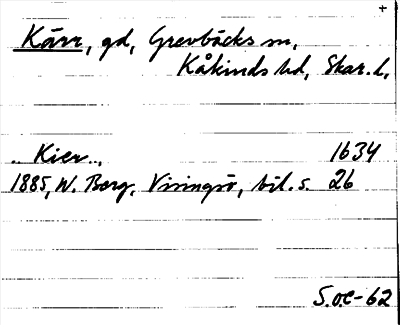 +
Kärr, gd, Grevbäcks sn,
Kåkinds hd, Skar. l.
.. Kier.., 1634
1885, W. Berg, Visingsö, bil. s. 26
S.O.E-62